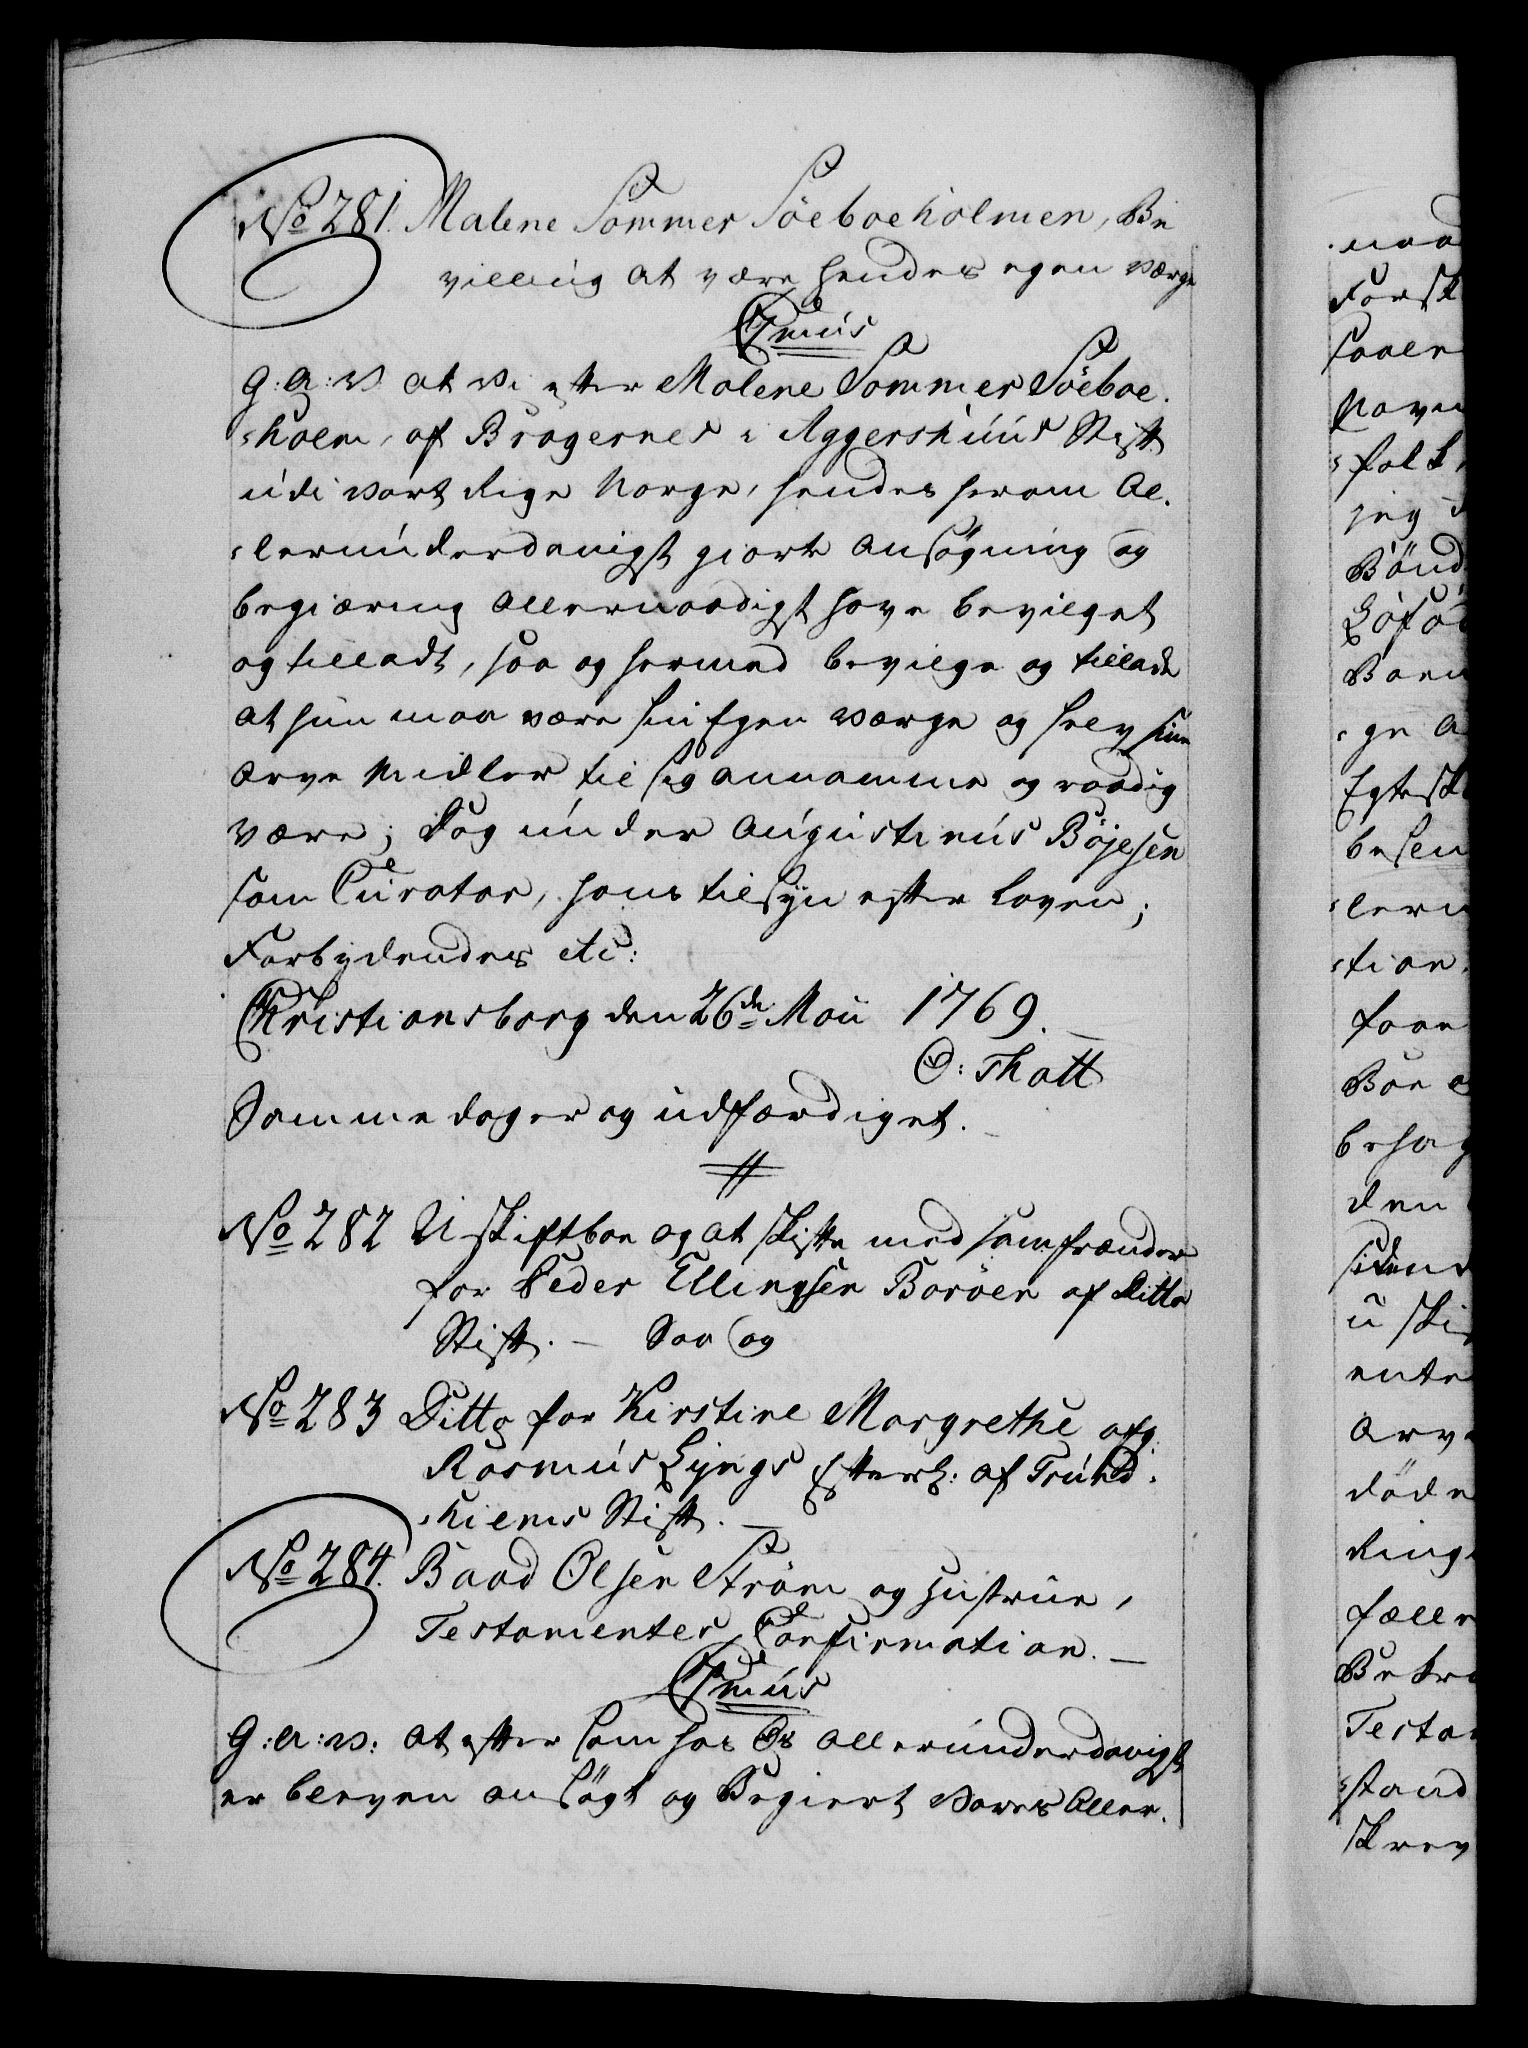 No 281. Malene Sommer Söeboeholmen, Be
villing at være hendes egen værge
C7mus
G: A: V. at Vi efter Malene Sommer Söeboe-
holm, af Bragernes i Aggershuus Stift
udi vort Rige Norge, hendes herom Al-
lerunderdanigst giorte Ansögning og
begiæring Allernaadigst have bevilget
og tilladt, saa og hermed bevilge og tillade
at hun maa være sin Egen værge og selv sine
Arve Midler til sig annamme og raadig
være; Dog under Augustinus Böjesen
som Curator, hans tilsyn efter Loven;
Forbydendes etc:
Christiansborg den 26de Maii 1769.
O: Thott
Samme dager og udfærdiget.
No 282 Uskiftboe og at skifte med samfrænder
for Peder Ellingsen Boröen af Ditto
Stift. - Saa og
No 283 Ditto for Kirstine Margrethe afg:
Rasmus Lyngs Efterl: af Trund-
hiems Stift. -
No 284. Baad Olsen Ström og Hustrue,
Testamentes Confirmation. -
C7mus
G: A: V: at eftersom hos Os Allerunderdanigst
er bleven ansögt og Begiert Vores Aller-
naad
Forsk
saaer
Navn
folk
jeg
Bönd
Löfö
Barn
ge A
Egtesk
besen
lern
tion
foer
Boe
behag
den
siden
u ski
ente
Arv
döde
Ring
fælle
Bekra
Testa
stand
skrev